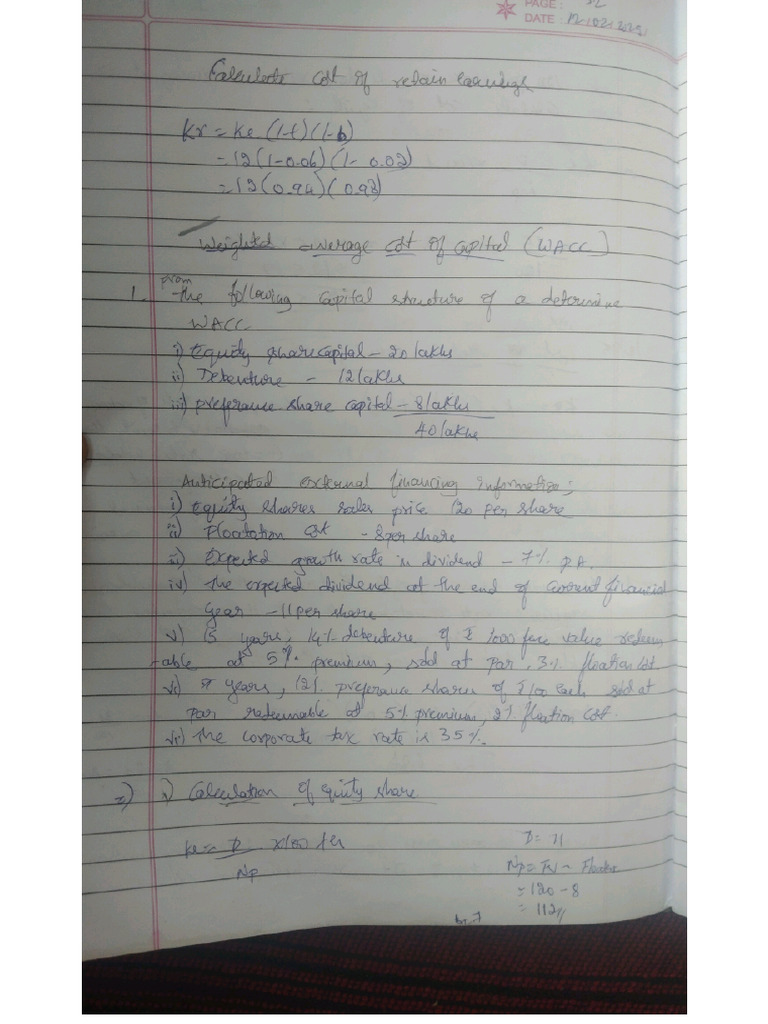 PAGE:
DATE: 12/02/2025
Calculate cost of retain earnings
Kr = Ke (1-t)(1-b)
= 12(1-0.06)(1-0.02)
= 12(0.94)(0.98)
Weighted average cost of capital (WACC)
1. from the following capital structure of a determine
WACC
i) Equity share capital - 20 lakhs
ii) Debenture - 12 lakhs
iii) preferance share capital - 8 lakhs
40 lakhs
Anticipated external financing information:
i) equity shares sales price 120 per share
ii) Floatation cost - 8 per share
iii) Expected growth rate in dividend - 7% P.A.
iv) The expected dividend at the end of current financial
year - 11 per share
v) 15 years, 14% debenture of ₹ 1000 face value redeem
able at 5% premium, sold at par, 3% floation cost.
vi) years, 12% preferance shares of ₹100 each sold at
par redeemable at 5% premium, 2% floation cost.
vii) The corporate tax rate is 35%.
i) Calculation of equity share
Ke = D x100 + Gr
Np
D = 11
Np = FV -
= 120 - 8
= 112//